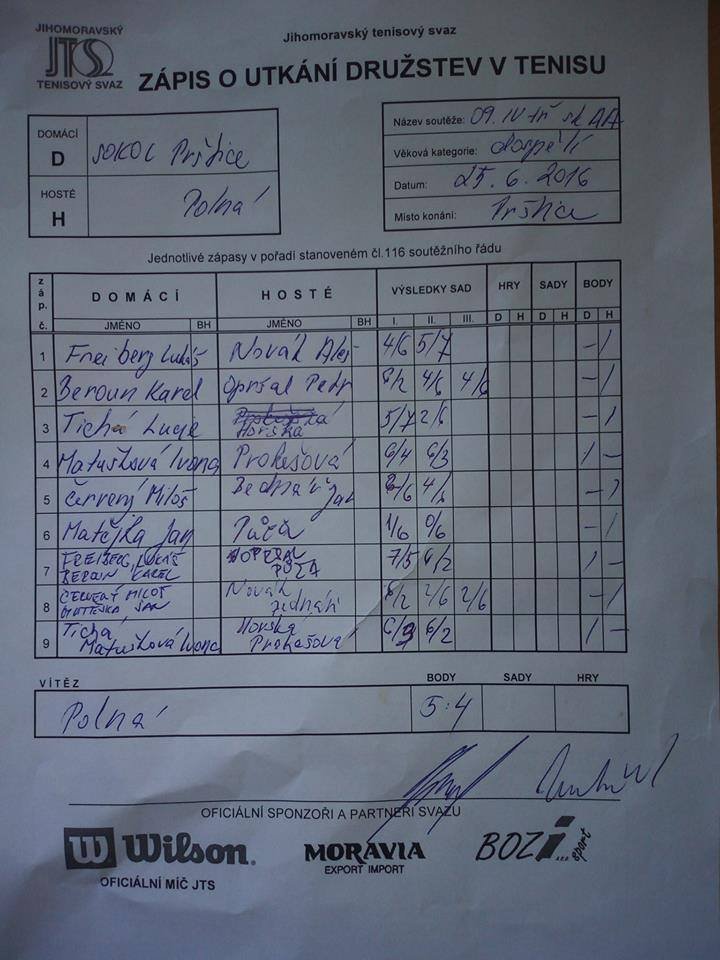 JIHOMORAVSKÝ
JTS
TENISOVÝ SVAZ
Jihomoravský tenisový svaz
ZÁPIS O UTKÁNÍ DRUŽSTEV V TENISU
DOMÁCÍ D SOKOL Prštice
HOSTÉ H Polná
Název soutěže: 09. IV tř sk AA
Věková kategorie: dospělí
Datum: 25. 6. 2016
Místo konání: Prštice
Jednotlivé zápasy v pořadí stanoveném čl.116 soutěžního řádu
záp. č. DOMÁCÍ HOSTÉ VÝSLEDKY SAD HRY SADY BODY
JMÉNO BH JMÉNO BH I. II. III. D H D H D H
1 Freiberg Lukáš Novák 4/6 5/7 – 1
2 Beroun Karel Opršal Petr 6/2 4/6 4/6 – 1
3 Tichá Lucie Horská 5/7 2/6 – 1
4 Matušková Ivona Prokešová 6/4 6/3 1 –
5 Červený Miloš Bednář Jan – 1
6 Matejka Jan 1/6 0/6 – 1
7 FREIBERG LUKÁŠ BEROUN KAREL OPRŠAL 7/5 6/2 1 –
8 MILOŠ JAN Novák 6/2 2/6 2/6 – 1
9 Tichá Matušková Ivona Horská Prokešová 6/2 1 –
VÍTĚZ BODY SADY HRY
Polná 5:4
OFICIÁLNÍ SPONZOŘI A PARTNEŘI SVAZU
W Wilson.
OFICIÁLNÍ MÍČ JTS
MORAVIA
EXPORT IMPORT
BOZI s.r.o. sport